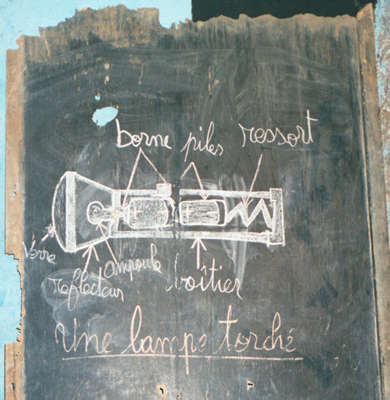 borne piles ressort
Verre
réflecteur
ampoule
boîtier
Une lampe torché